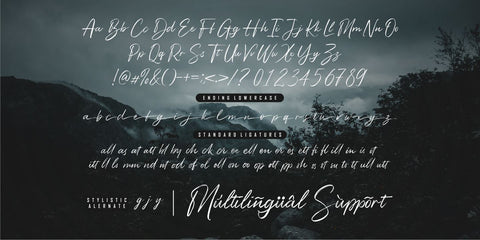 Aa Bb Cc Dd Ee Ff Gg Hh Ii Jj Kk Ll Mm Nn Oo
Pp Qq Rr Ss Tt Uu Vv Ww Xx Yy Zz
!@#%&()-+=:<>/?,0123456789
ENDING LOWERCASE
a b c d e f g h i j k l m n o p q r s t u v w x y z
STANDARD LIGATURES
all as at att bl by ch ck cr ee ell en er es ett fi fl ill im it
itt ll ls mm nd nt od of ol ell on oo op ott pp sh is st tn ts tt ull utt
STYLISTIC
ALERNATE
g j y | Múltilingüâl Sùppört